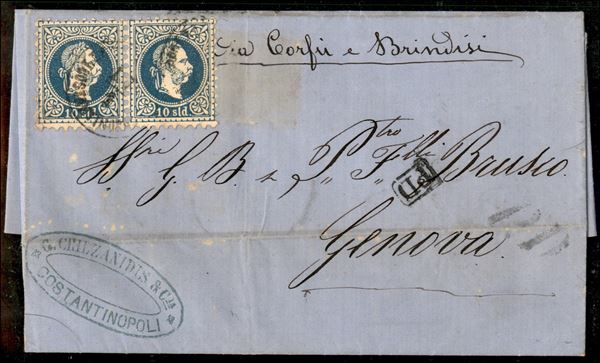 10 sld 10 sld
Via Corfù e Brindisi
G. B. e P.tro F.lli Brusco.
PD
Genova.
G. CRILZANIDUS & Cia
COSTANTINOPOLI